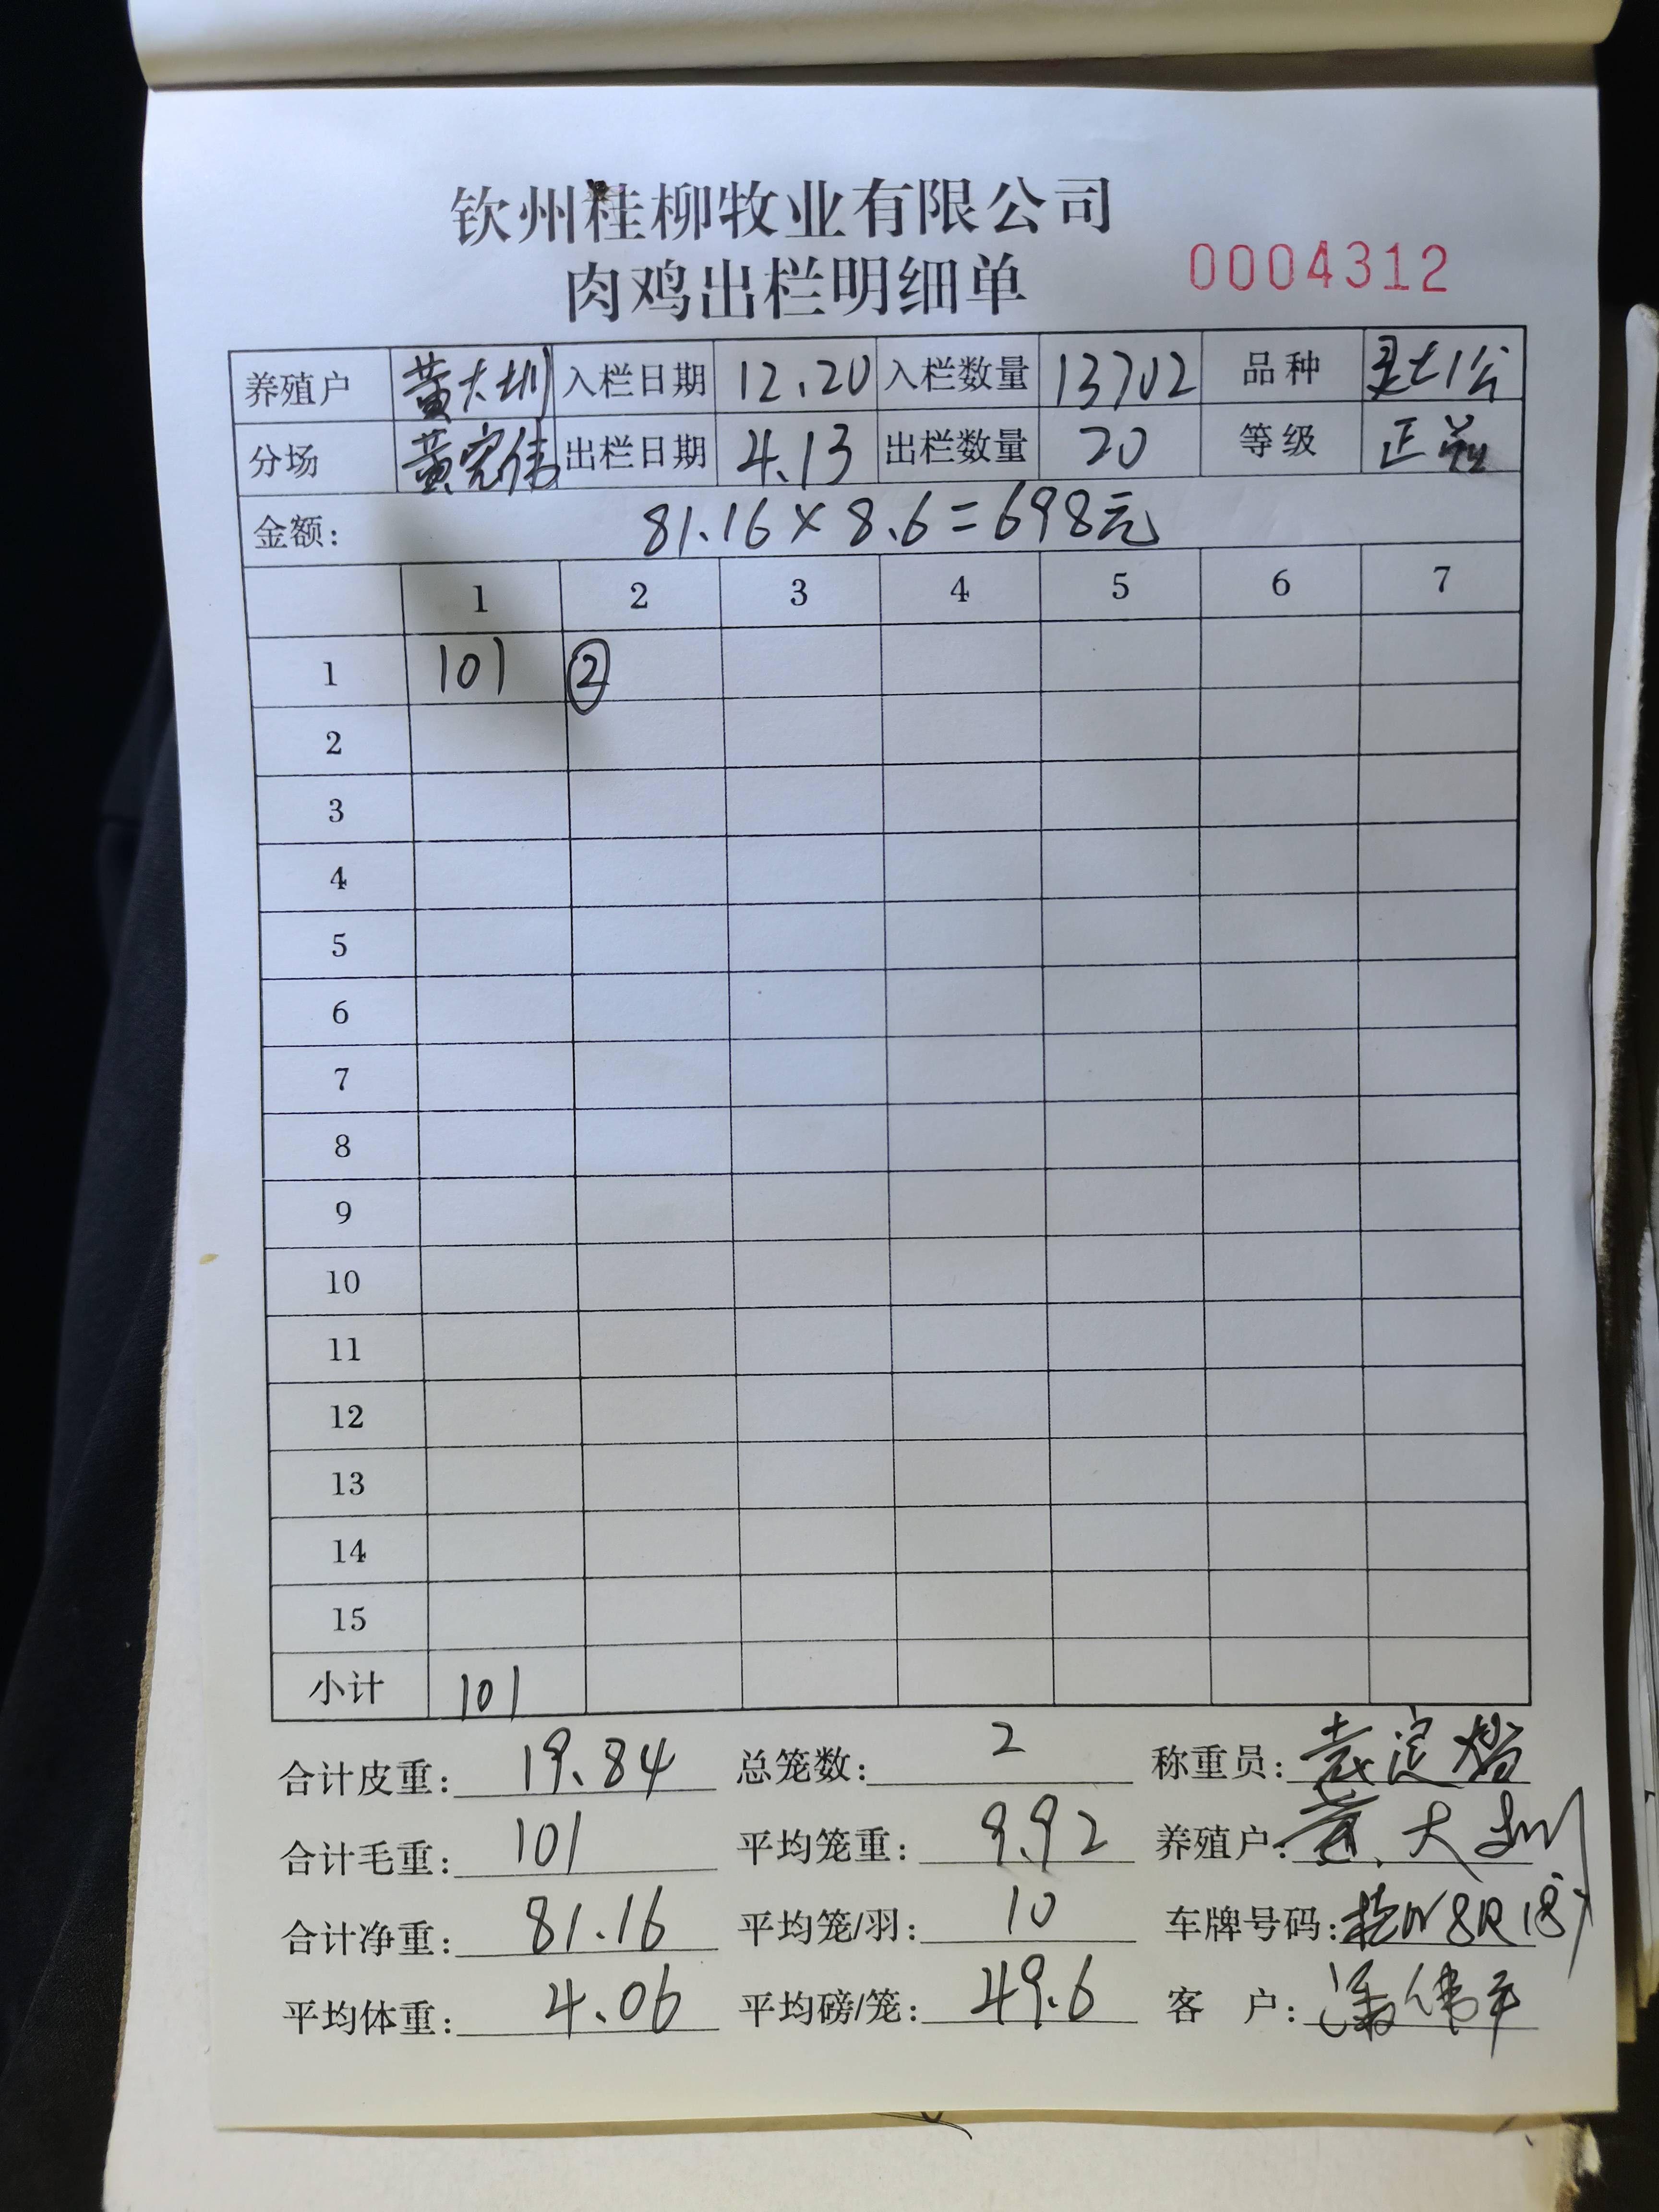 钦州桂柳牧业有限公司
肉鸡出栏明细单 0004312
养殖户 黄大圳 入栏日期 12.20 入栏数量 13702 品种 灵七1公
分场 黄宪伟 出栏日期 4.13 出栏数量 20 等级 正
金额: 81.16×8.6=698元
1 2 3 4 5 6 7
1 101 ②
2
3
4
5
6
7
8
9
10
11
12
13
14
15
小计 101
合计皮重: 19.84 总笼数: 2 称重员:
合计毛重: 101 平均笼重: 9.92 养殖户: 黄大圳
合计净重: 81.16 平均笼/羽: 10 车牌号码: 桂N8R187
平均体重: 4.06 平均磅/笼: 49.6 客户: 潘伟平